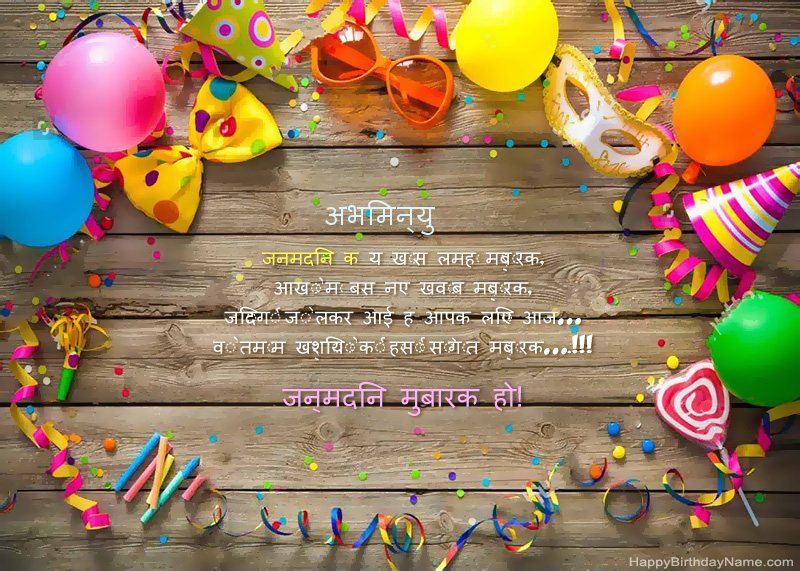 अभमिन्यु
जनमदनि क य खास लमहा मबारक,
आखोम बस नए खवाब मबारक,
जदिगी जो लेकर आई ह आपक लएि आज...
वो तमाम खशयिो की हसी सगात मबारक...!!!
जन्मदनि मुबारक हो!
HappyBirthdayName.com